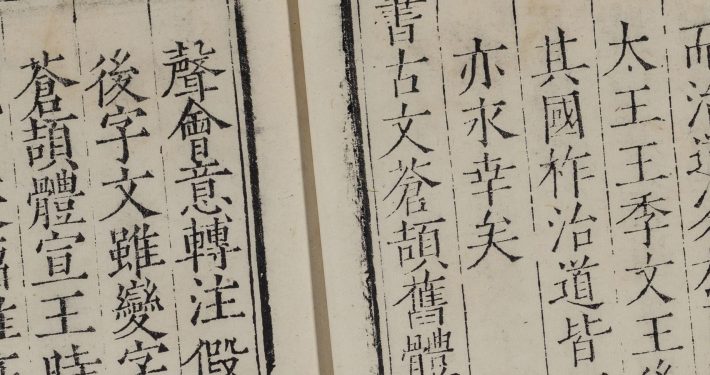 而治道
太王王季文王後
其國祚治道皆
亦永幸矣
書古文蒼頡舊體
聲會意轉注假
後字文雖變字
蒼頡體宣王時